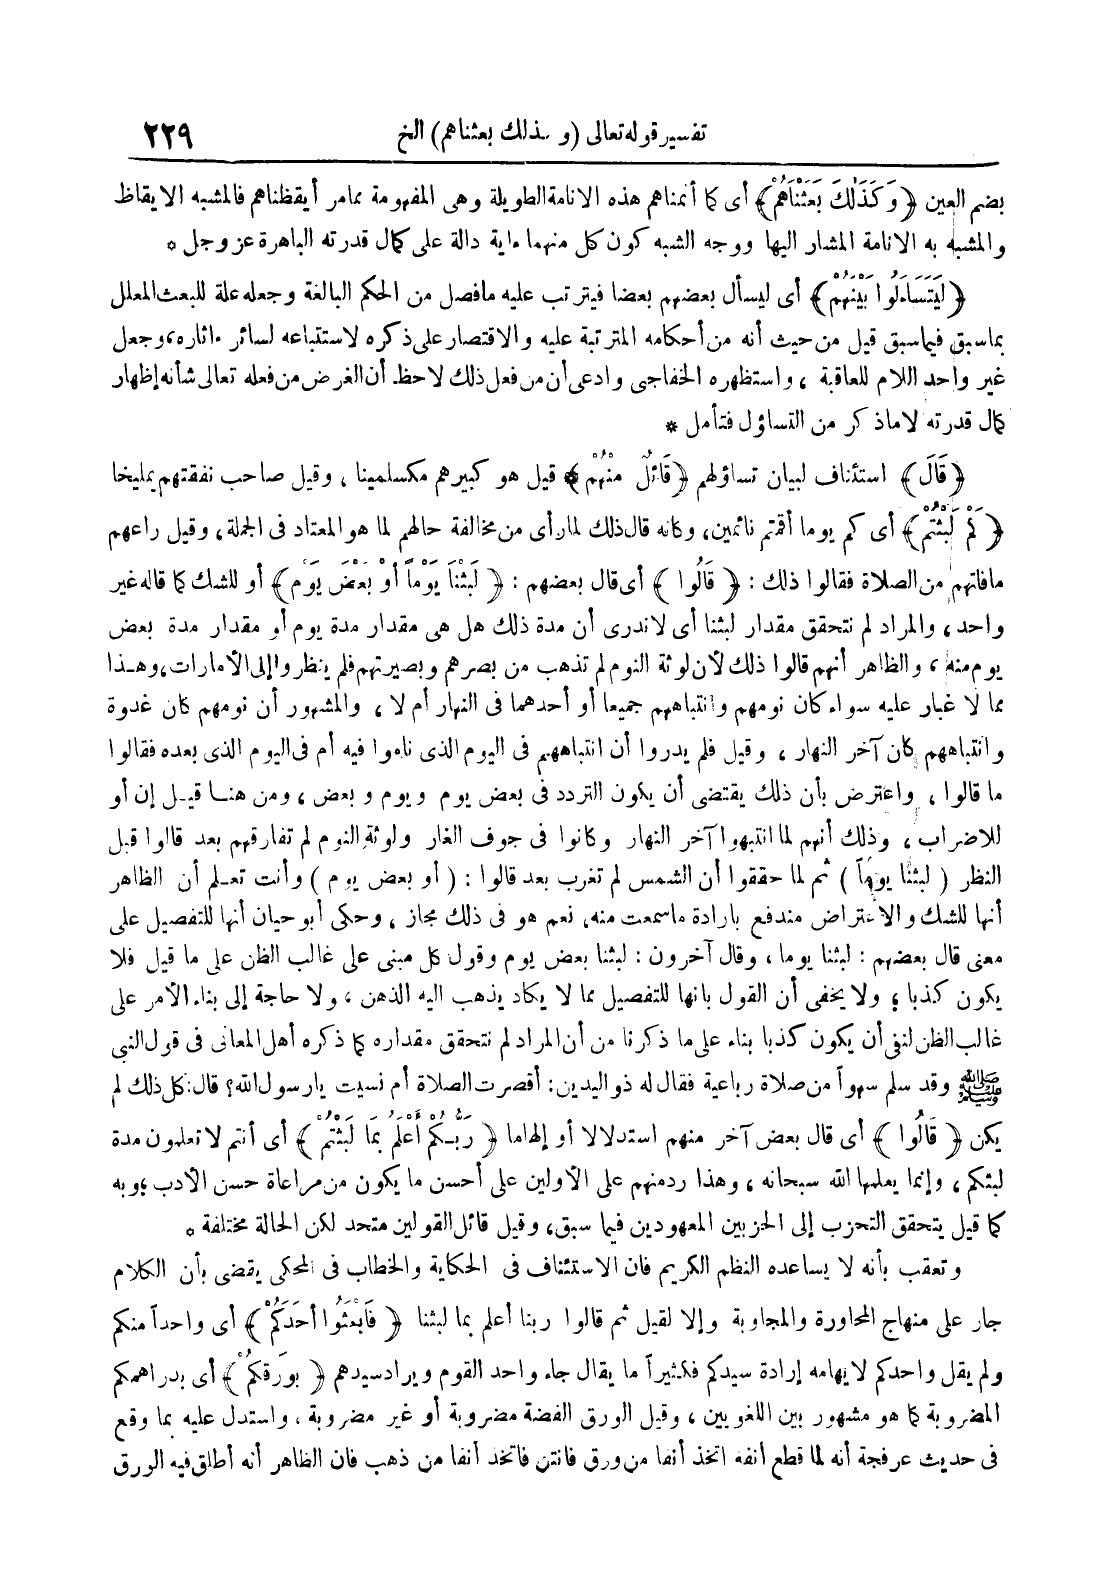 تفسير قوله تعالى (و كذلك بعثناهم) الخ ٢٢٩
بضم العين ﴿وَكَذَلِكَ بَعَثْنَاهُمْ﴾ أى كما أنمناهم هذه الانامة الطويلة وهى المفهومة مما مر أيقظناهم فالمشبه الايقاظ
والمشبه به الانامة المشار اليها ووجه الشبه كون كل منهما ءاية دالة على كمال قدرته الباهرة عز وجل *
﴿لِيَتَسَاءَلُوا بَيْنَهُمْ﴾ أى ليسأل بعضهم بعضا فيترتب عليه مافصل من الحكم البالغة وجعله علة للبعث المعلل
بماسبق فيماسبق قيل من حيث أنه من أحكامه المترتبة عليه والاقتصار على ذكره لاستتباعه لسائر ءاثاره، وجعل
غير واحد اللام للعاقبة ، واستظهره الخفاجى وادعى أن من فعل ذلك لاحظ أن الغرض من فعله تعالى شأنه إظهار
كمال قدرته لاماذكر من التساؤل فتأمل *
﴿قَالَ﴾ استئناف لبيان تساؤلهم ﴿قَائِلٌ مِنْهُمْ﴾ قيل هو كبيرهم مكسلمينا ، وقيل صاحب نفقتهم يمليخا
﴿كَمْ لَبِثْتُمْ﴾ أى كم يوما أقمتم نائمين، وكانه قال ذلك لما رأى من مخالفة حالهم لما هو المعتاد فى الجملة، وقيل راعهم
مافاتهم من الصلاة فقالوا ذلك : ﴿ قَالُوا ﴾ أى قال بعضهم : ﴿ لَبِثْنَا يَوْماً أَوْ بَعْضَ يَوْمٍ ﴾ أو للشك كما قاله غير
واحد، والمراد لم نتحقق مقدار لبثنا أى لاندرى أن مدة ذلك هل هى مقدار مدة يوم أو مقدار مدة بعض
يوم منه ، والظاهر أنهم قالوا ذلك لأن لوثة النوم لم تذهب من بصرهم وبصيرتهم فلم ينظروا إلى الأمارات، وهـذا
مما لا غبار عليه سواء كان نومهم وانتباههم جميعا أو أحدهما فى النهار أم لا ، والمشهور أن نومهم كان غدوة
وانتباههم كان آخر النهار ، وقيل فلم يدروا أن انتباههم فى اليوم الذى ناموا فيه أم فى اليوم الذى بعده فقالوا
ما قالوا ، واعترض بأن ذلك يقتضى أن يكون التردد فى بعض يوم ويوم و بعض ، ومن هنـا قيـل إن أو
للاضراب ، وذلك أنهم لما انتبهوا آخر النهار وكانوا فى جوف الغار ولوثة النوم لم تفارقهم بعد قالوا قبل
النظر ( لبثنا يوماً ) ثم لما حققوا أن الشمس لم تغرب بعد قالوا : ( أو بعض يوم ) وأنت تعـلم أن الظاهر
أنها للشك والاعتراض مندفع بارادة ماسمعت منه، نعم هو فى ذلك مجاز ، وحكى أبو حيان أنها للتفصيل على
معنى قال بعضهم : لبثنا يوما ، وقال آخرون : لبثنا بعض يوم وقول كل مبنى على غالب الظن على ما قيل فلا
يكون كذبا ؛ ولا يخفى أن القول بانها للتفصيل مما لا يكاد يذهب اليه الذهن ، ولا حاجة إلى بناء الأمر على
غالب الظن لنفى أن يكون كذبا بناء على ما ذكرنا من أن المراد لم نتحقق مقداره كما ذكره أهل المعانى فى قول النبى
ﷺ وقد سلم سهواً من صلاة رباعية فقال له ذو اليدين : أقصرت الصلاة أم نسيت يارسول الله؟ قال: كل ذلك لم
يكن ﴿ قَالُوا ﴾ أى قال بعض آخر منهم استدلالا أو إلهاما ﴿ رَبُّـكُمْ أَعْلَمُ بِمَا لَبِثْتُمْ ﴾ أى أنتم لا تعلمون مدة
لبثكم ، وإنما يعلمها الله سبحانه ، وهذا رد منهم على الأولين على أحسن ما يكون من مراعاة حسن الأدب ؛ وبه
كما قيل يتحقق التحزب إلى الحزبين المعهودين فيما سبق، وقيل قائل القولين متحد لكن الحالة مختلفة *
وتعقب بأنه لا يساعده النظم الكريم فان الاستئناف فى الحكاية والخطاب فى المحكى يقضى بأن الكلام
جار على منهاج المحاورة والمجاوبة وإلا لقيل ثم قالوا ربنا أعلم بما لبثنا ﴿ فَابْعَثُوا أَحَدَكُمْ ﴾ أى واحداً منكم
ولم يقل واحدكم لايهامه إرادة سيدكم فكثيراً ما يقال جاء واحد القوم ويراد سيدهم ﴿ بِوَرِقِكُمْ ﴾ أى بدراهمكم
المضروبة كما هو مشهور بين اللغويين ، وقيل الورق الفضة مضروبة أو غير مضروبة ، واستدل عليه بما وقع
فى حديث عرفجة أنه لما قطع أنفه اتخذ أنفا من ورق فانتن فاتخذ أنفا من ذهب فان الظاهر أنه أطلق فيه الورق